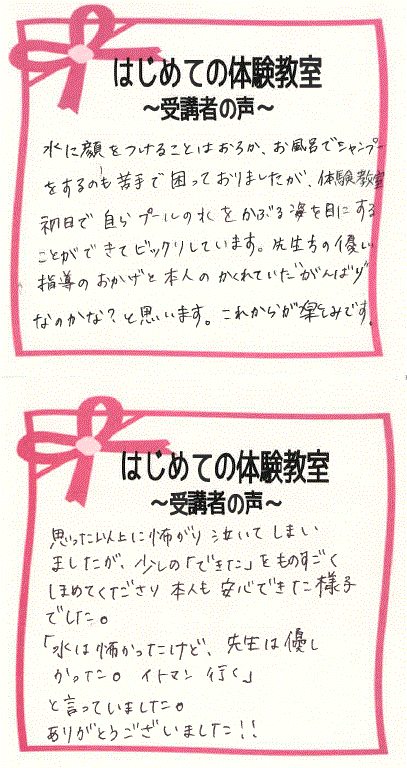 はじめての体験教室
～受講者の声～
水に顔をつけることはおろか、お風呂でシャンプー
をするのも苦手で困っておりましたが、体験教室
初日で自らプールの水をかぶる姿を目にする
ことができてビックリしています。先生方の優しい
指導のおかげと本人のかくれていた"がんばり"
なのかな?と思います。これからが楽しみです。
はじめての体験教室
～受講者の声～
思った以上に怖がり泣いてしまい
ましたが、少しの「できた」をものすごく
ほめてくださり本人も安心できた様子
でした。
「水は怖かったけど、先生は優し
かった。イトマン行く」
と言っていました。
ありがとうございました!!